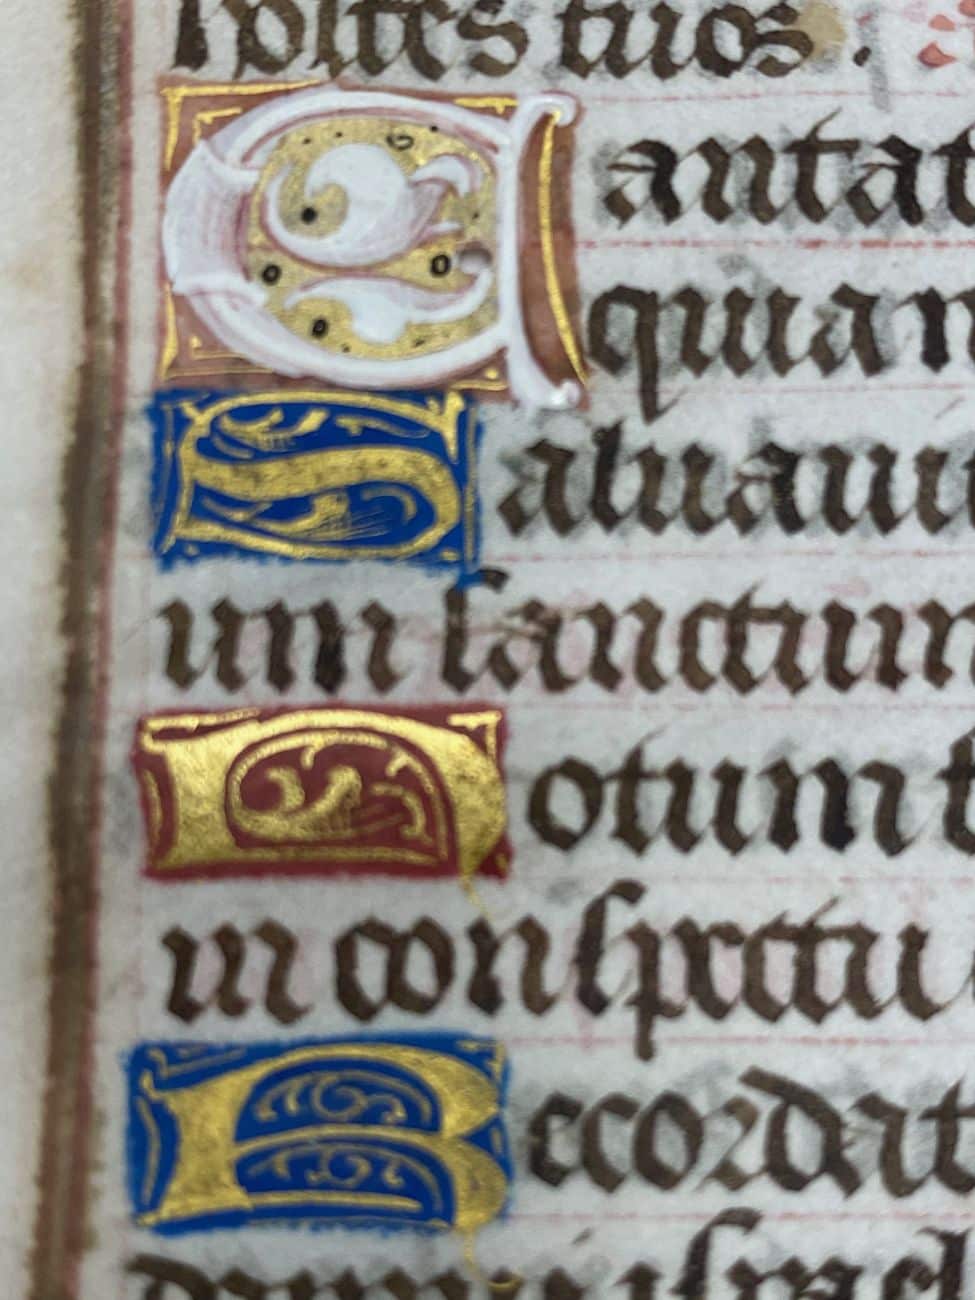 hostes tuos.
Cantat
quiam
Saluaui
um sanctum
Notum f
in conspectu
Recordat
domui israel